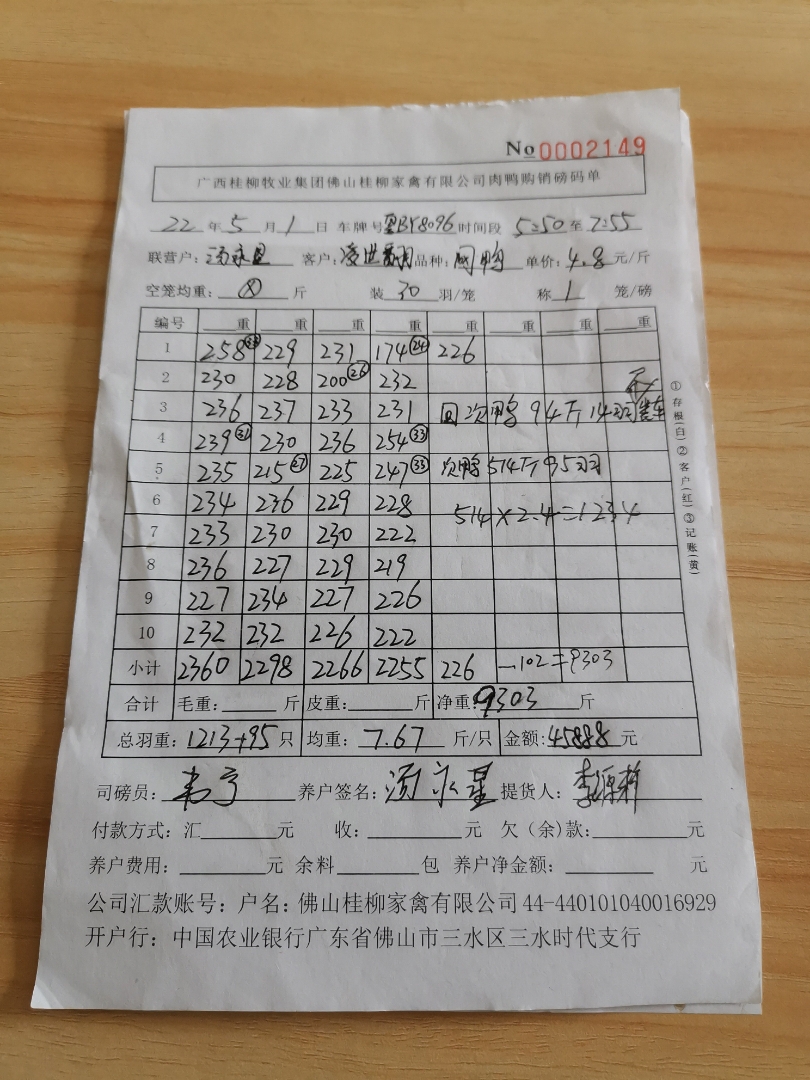 No 0002149
广西桂柳牧业集团佛山桂柳家禽有限公司肉鸭购销磅码单
22 年 5 月 1 日 车牌号 BY8096 时间段 5:50 至 7:55
联营户: 汤永星 客户: 凌世 品种: 鸭 单价: 4.8 元/斤
空笼均重: ⑧ 斤 装 30 羽/笼 称 1 笼/磅
编号 重 重 重 重 重 重 重 重
1 258㉝ 229 231 174㉔ 226
2 230 228 200㉖ 232
3 236 237 233 231 回次鸭 94斤 14羽 装车
4 239㉛ 230 236 254㉝
5 235 215㉗ 225 247㉝ 次鸭 514斤 95羽
6 234 236 229 228 514×2.4=1234
7 233 230 230 222
8 236 227 229 219
9 227 234 227 226
10 232 232 226 222
小计 2360 2298 2266 2255 226 -102=9303
合计 毛重: 斤 皮重: 斤 净重: 9303 斤
总羽重: 1213+95 只 均重: 7.67 斤/只 金额: 45888 元
司磅员: 韦 养户签名: 汤永星 提货人: 李
付款方式: 汇 元 收: 元 欠(余)款: 元
养户费用: 元 余料 包 养户净金额: 元
公司汇款账号: 户名: 佛山桂柳家禽有限公司 44-440101040016929
开户行: 中国农业银行广东省佛山市三水区三水时代支行
①存根(白)②客户(红)③记账(黄)